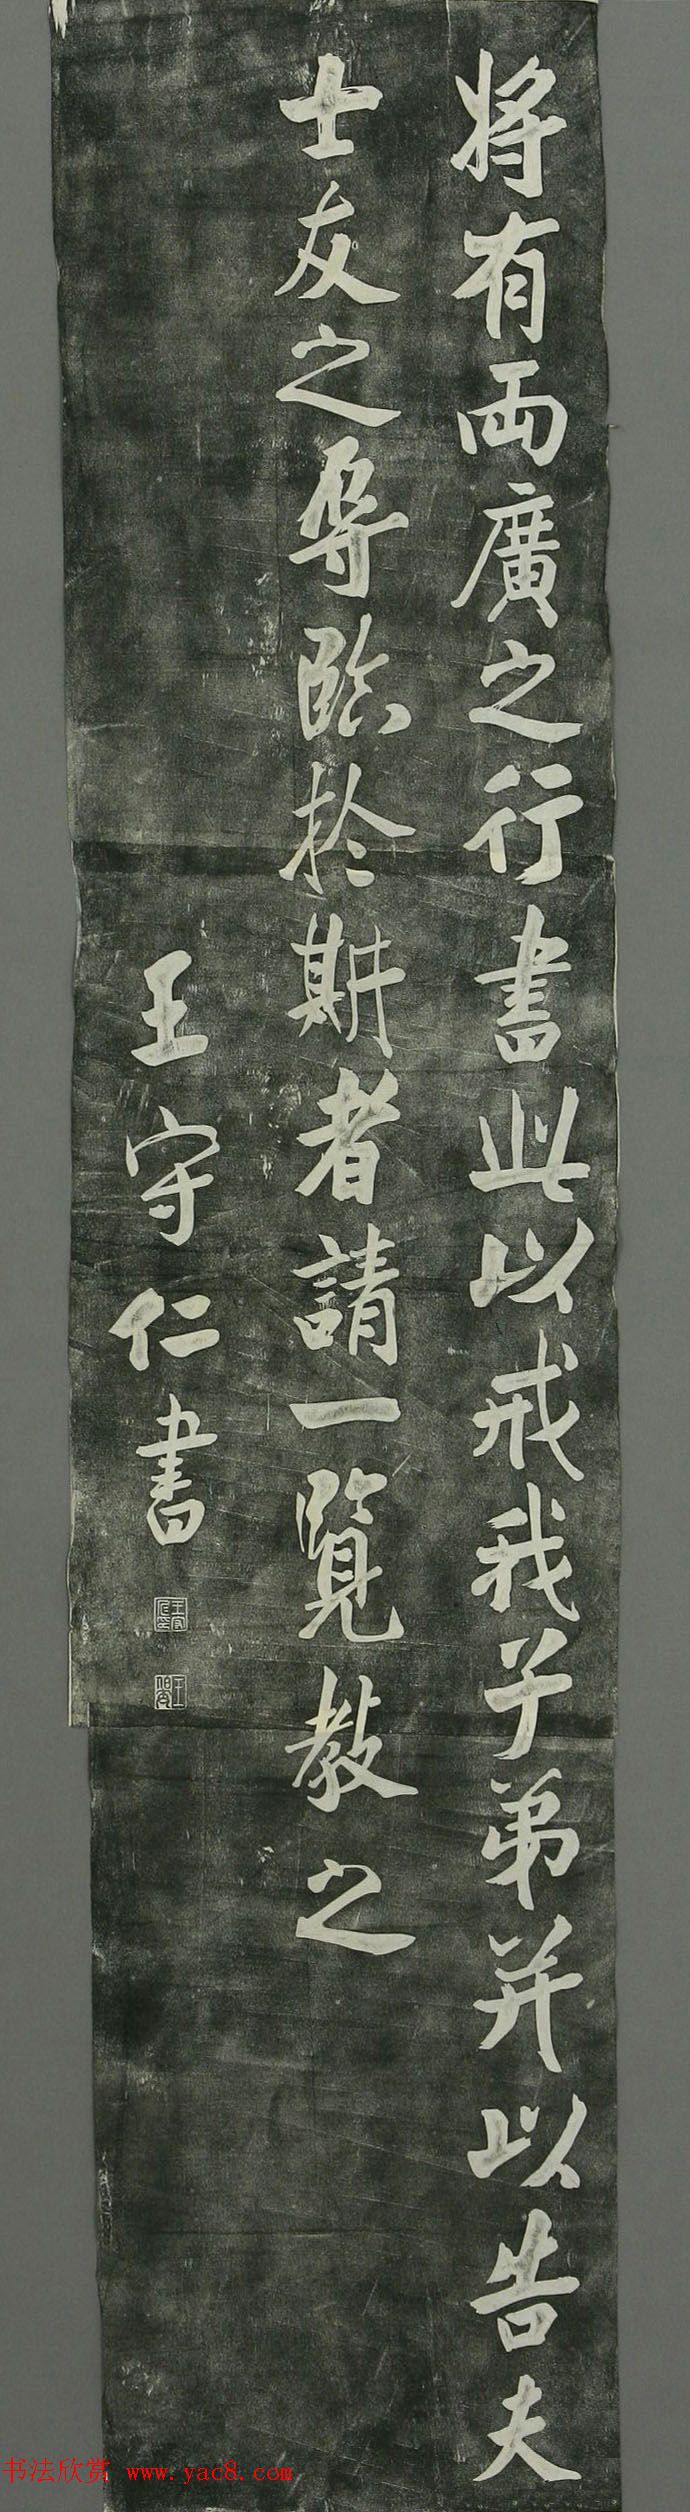 将有兩廣之行書此以戒我子弟并以告夫
士友之辱臨於斯者請一覽教之
王守仁書
书法欣赏 www.yac8.com